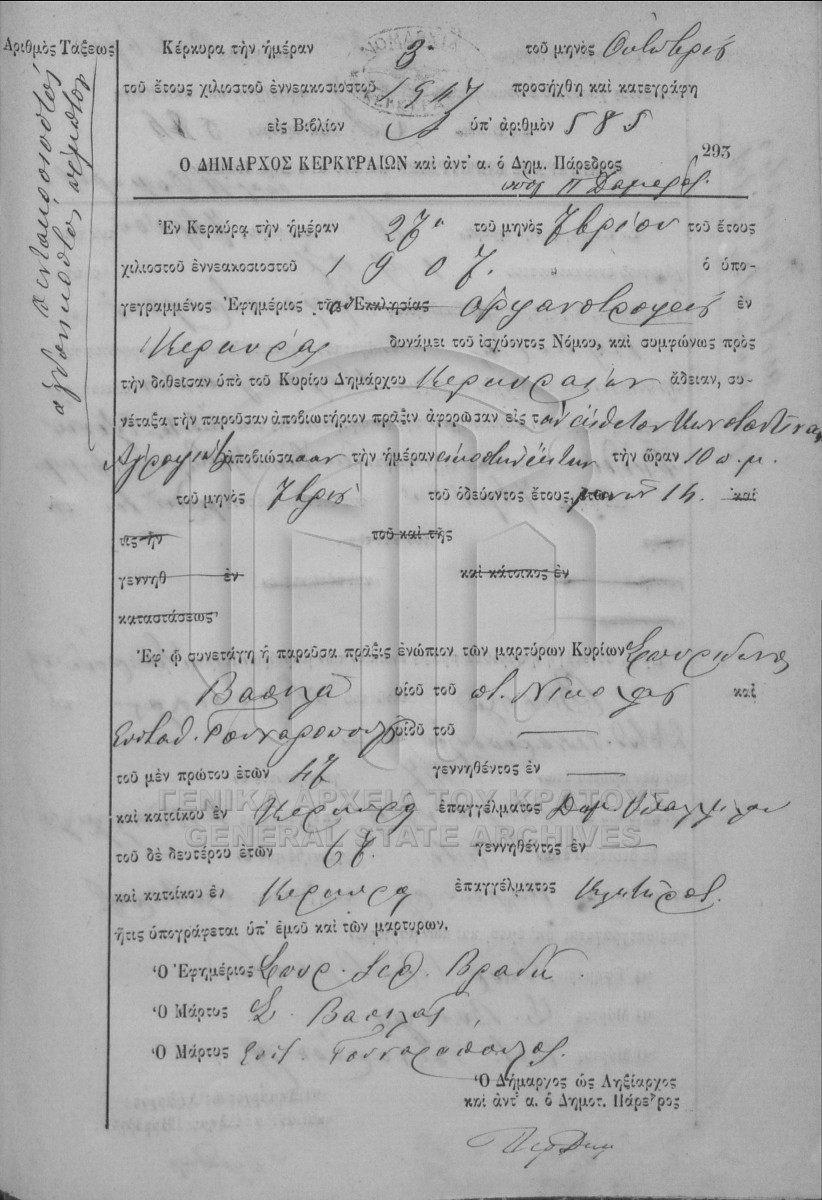 Ἀριθμὸς Τάξεως
πεντακοσιοστὸς
ὀγδοηκοστὸς πέμπτος
Κέρκυρα τὴν ἡμέραν 3 τοῦ μηνὸς Ὀκτωβρίου
τοῦ ἔτους χιλιοστοῦ ἐννεακοσιοστοῦ 1907 προσήχθη καὶ κατεγράφη
εἰς Βιβλίον Α ὑπ' ἀριθμὸν 585
Ο ΔΗΜΑΡΧΟΣ ΚΕΡΚΥΡΑΙΩΝ καὶ ἀντ' α. ὁ Δημ. Πάρεδρος
293
Ἐν Κερκύρᾳ τὴν ἡμέραν 27η τοῦ μηνὸς 7βρίου τοῦ ἔτους
χιλιοστοῦ ἐννεακοσιοστοῦ 1907. ὁ ὑπο-
γεγραμμένος Ἐφημέριος τῆς Ἐκκλησίας ἐν
Κερκύρᾳ δυνάμει τοῦ ἰσχύοντος Νόμου, καὶ συμφώνως πρὸς
τὴν δοθεῖσαν ὑπὸ τοῦ Κυρίου Δημάρχου Κερκυραίων ἄδειαν, συ-
νέταξα τὴν παροῦσαν ἀποβιωτήριον πρᾶξιν ἀφορῶσαν εἰς τὸν ἔκθετον Κωνσταντῖνον
ἀποβιώσαντα τὴν ἡμέραν εἰκοστὴν ἕκτην τὴν ὥραν 10 π.μ.
τοῦ μηνὸς 7βρίου τοῦ ὁδεύοντος ἔτους, ἐτῶν μηνῶν 14. καὶ
τις ἦν τοῦ καὶ τῆς
γεννηθ ἐν καὶ κάτοικος ἐν
καταστάσεως
Ἐφ' ᾧ συνετάγη ἡ παροῦσα πρᾶξις ἐνώπιον τῶν μαρτύρων Κυρίων Σπυρίδωνος
Βασιλᾶ υἱοῦ τοῦ π. Νικολάου καὶ
Ευσταθ. Γουναροπούλου υἱοῦ τοῦ —
τοῦ μὲν πρώτου ἐτῶν 47 γεννηθέντος ἐν —
ΓΕΝΙΚΑ ΑΡΧΕΙΑ ΤΟΥ ΚΡΑΤΟΥΣ
καὶ κατοίκου ἐν Κερκύρᾳ ἐπαγγέλματος Δημ. Ὑπαλλήλου
GENERAL STATE ARCHIVES
τοῦ δὲ δευτέρου ἐτῶν 67. γεννηθέντος ἐν —
καὶ κατοίκου ἐν Κερκύρᾳ ἐπαγγέλματος Κλητῆρος.
ἥτις ὑπογράφεται ὑπ' ἐμοῦ καὶ τῶν μαρτύρων.
Ὁ Ἐφημέριος Σπυρ.
Ὁ Μάρτυς Σ. Βασιλᾶς
Ὁ Μάρτυς Ευστ. Γουναρόπουλος.
Ὁ Δήμαρχος ὡς Ληξίαρχος
καὶ ἀντ' α. ὁ Δημοτ. Πάρεδρος